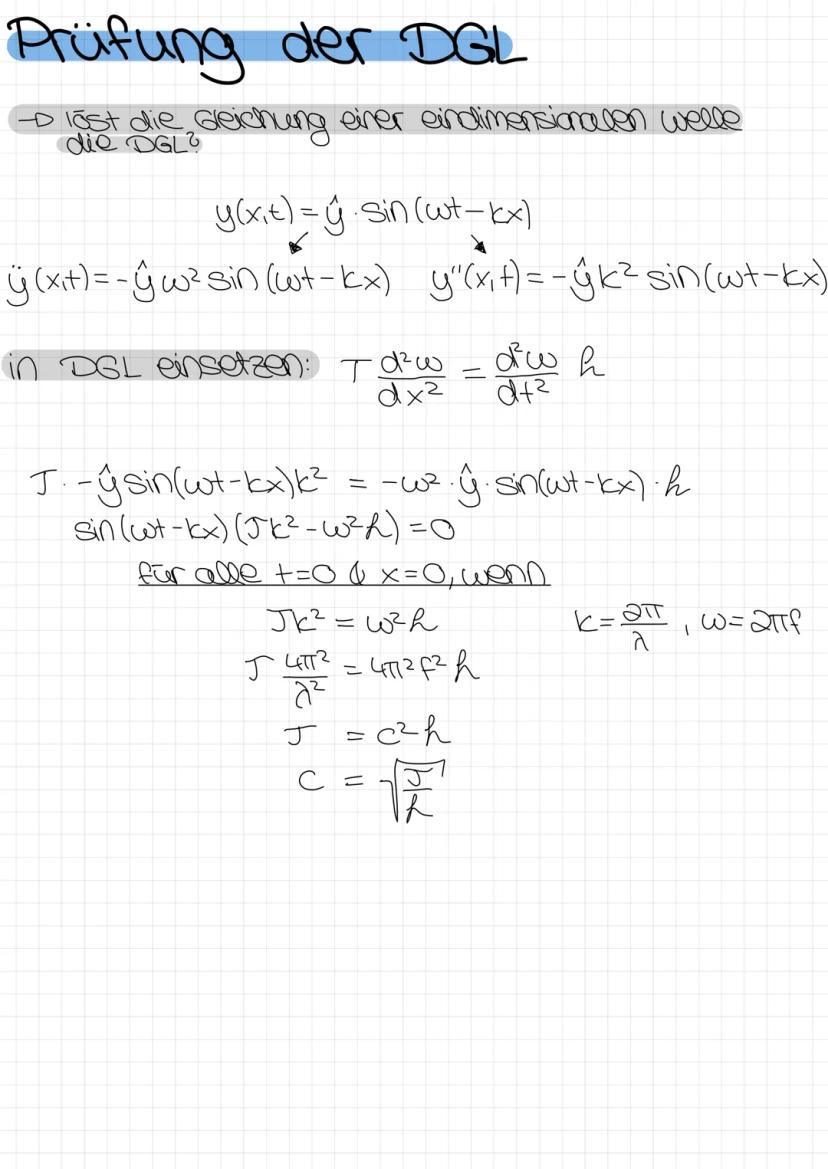 Prüfung der DGL
→ löst die Gleichung einer eindimensionalen welle
die DGL?
y(x,t) = ŷ · sin(ωt − kx)
ÿ(x,t) = −ŷω² sin(ωt − kx)   y''(x,t) = −ŷk² sin(ωt − kx)
in DGL einsetzen: T d²w/dx² = d²w/dt² h
J · −ŷ sin(ωt − kx)k² = −ω² · ŷ · sin(ωt − kx) · h
sin(ωt − kx)(Jk² − ω²h) = 0
für alle t=0 & x=0, wenn
Jk² = ω²h   k = 2π/λ , ω = 2πf
J 4π²/λ² = 4π²f² h
J = c²h
c = √(J/h)